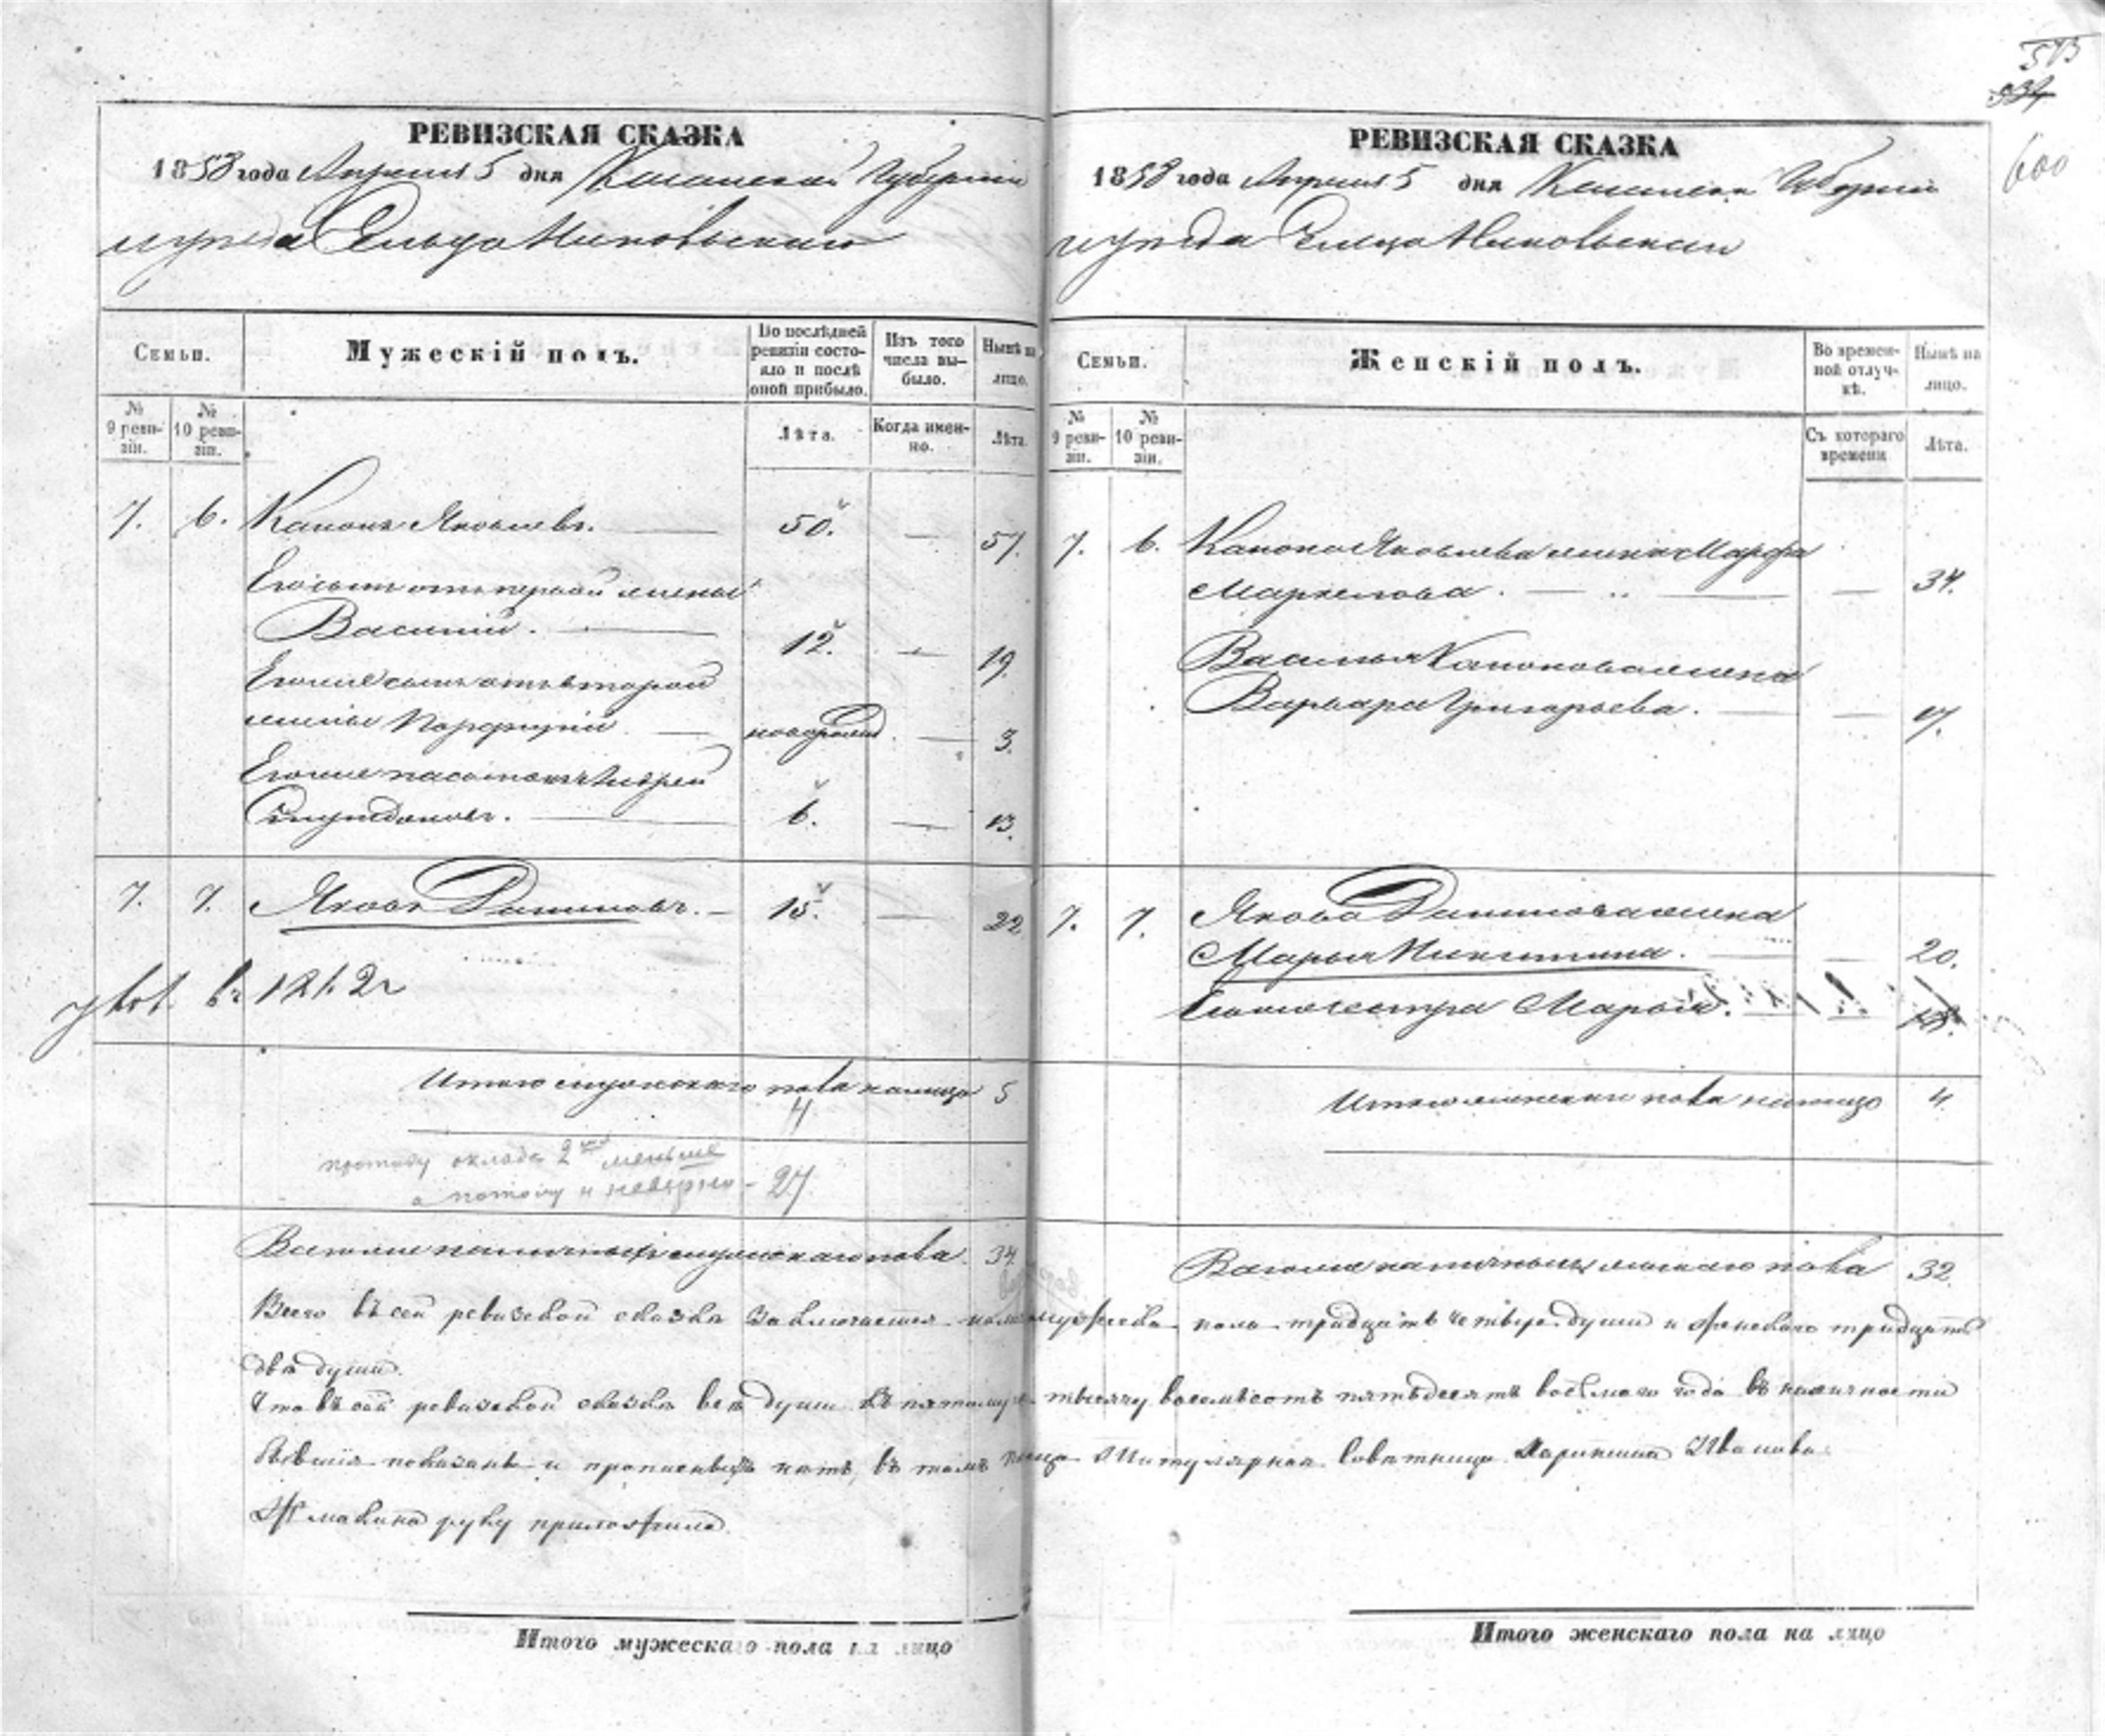 573
534
600
РЕВИЗСКАЯ СКАЗКА
1858 года Апреля 5 дня Казанской Губернии
уезда Сельца Никольскаго
Семьи.
Мужескій полъ.
По послѣдней ревизіи состояло и послѣ оной прибыло.
Изъ того числа выбыло.
Нынѣ на лицо.
№ 9 ревизіи.
№ 10 ревизіи.
Лѣта.
Когда именно.
Лѣта.
7. 6. Канонъ Яковлевъ. 50. 57.
Его сынъ отъ первой жены
Василий. 12. 19.
Его же сынъ отъ второй
жены Порфирій новорожд. 3.
Его же пасынокъ Андрей
6. 13.
7. 7. Яковъ 15. 22
Итого мужескаго пола налицо 5
4
оклада 2 меньше
а потому и неверно - 27
Всего же наличныхъ мужескаго пола 34.
РЕВИЗСКАЯ СКАЗКА
1858 года Апреля 5 дня Казанской Губерніи
уезда Сельца Никольскаго
Семьи.
Женскій полъ.
Во временной отлучкѣ.
Нынѣ на лицо.
№ 9 ревизіи.
№ 10 ревизіи.
Съ котораго времени
Лѣта.
7. 6. Канона Яковлева жена Марфа
Маркелова. 37.
Василья Канонова жена
Варвара Григорьева. 17.
7. 7. Якова жена
Марья Никитина. 20.
Его же сестра Марья.
Итого женскаго пола налицо 4.
Всего же наличныхъ женскаго пола 32.
Всего въ сей ревизской сказкѣ заключается мужеска пола тридцать четыре души и женскаго тридцать
двѣ души.
Что въ сей ревизской сказкѣ всѣ души къ пятому тысячу восемьсотъ пятьдесятъ восьмого года въ наличности
бывшія показаны и прописныхъ нѣтъ, въ томъ Титулярная Советница Иванова
руку приложила.
Итого мужескаго пола на лицо
Итого женскаго пола на лицо